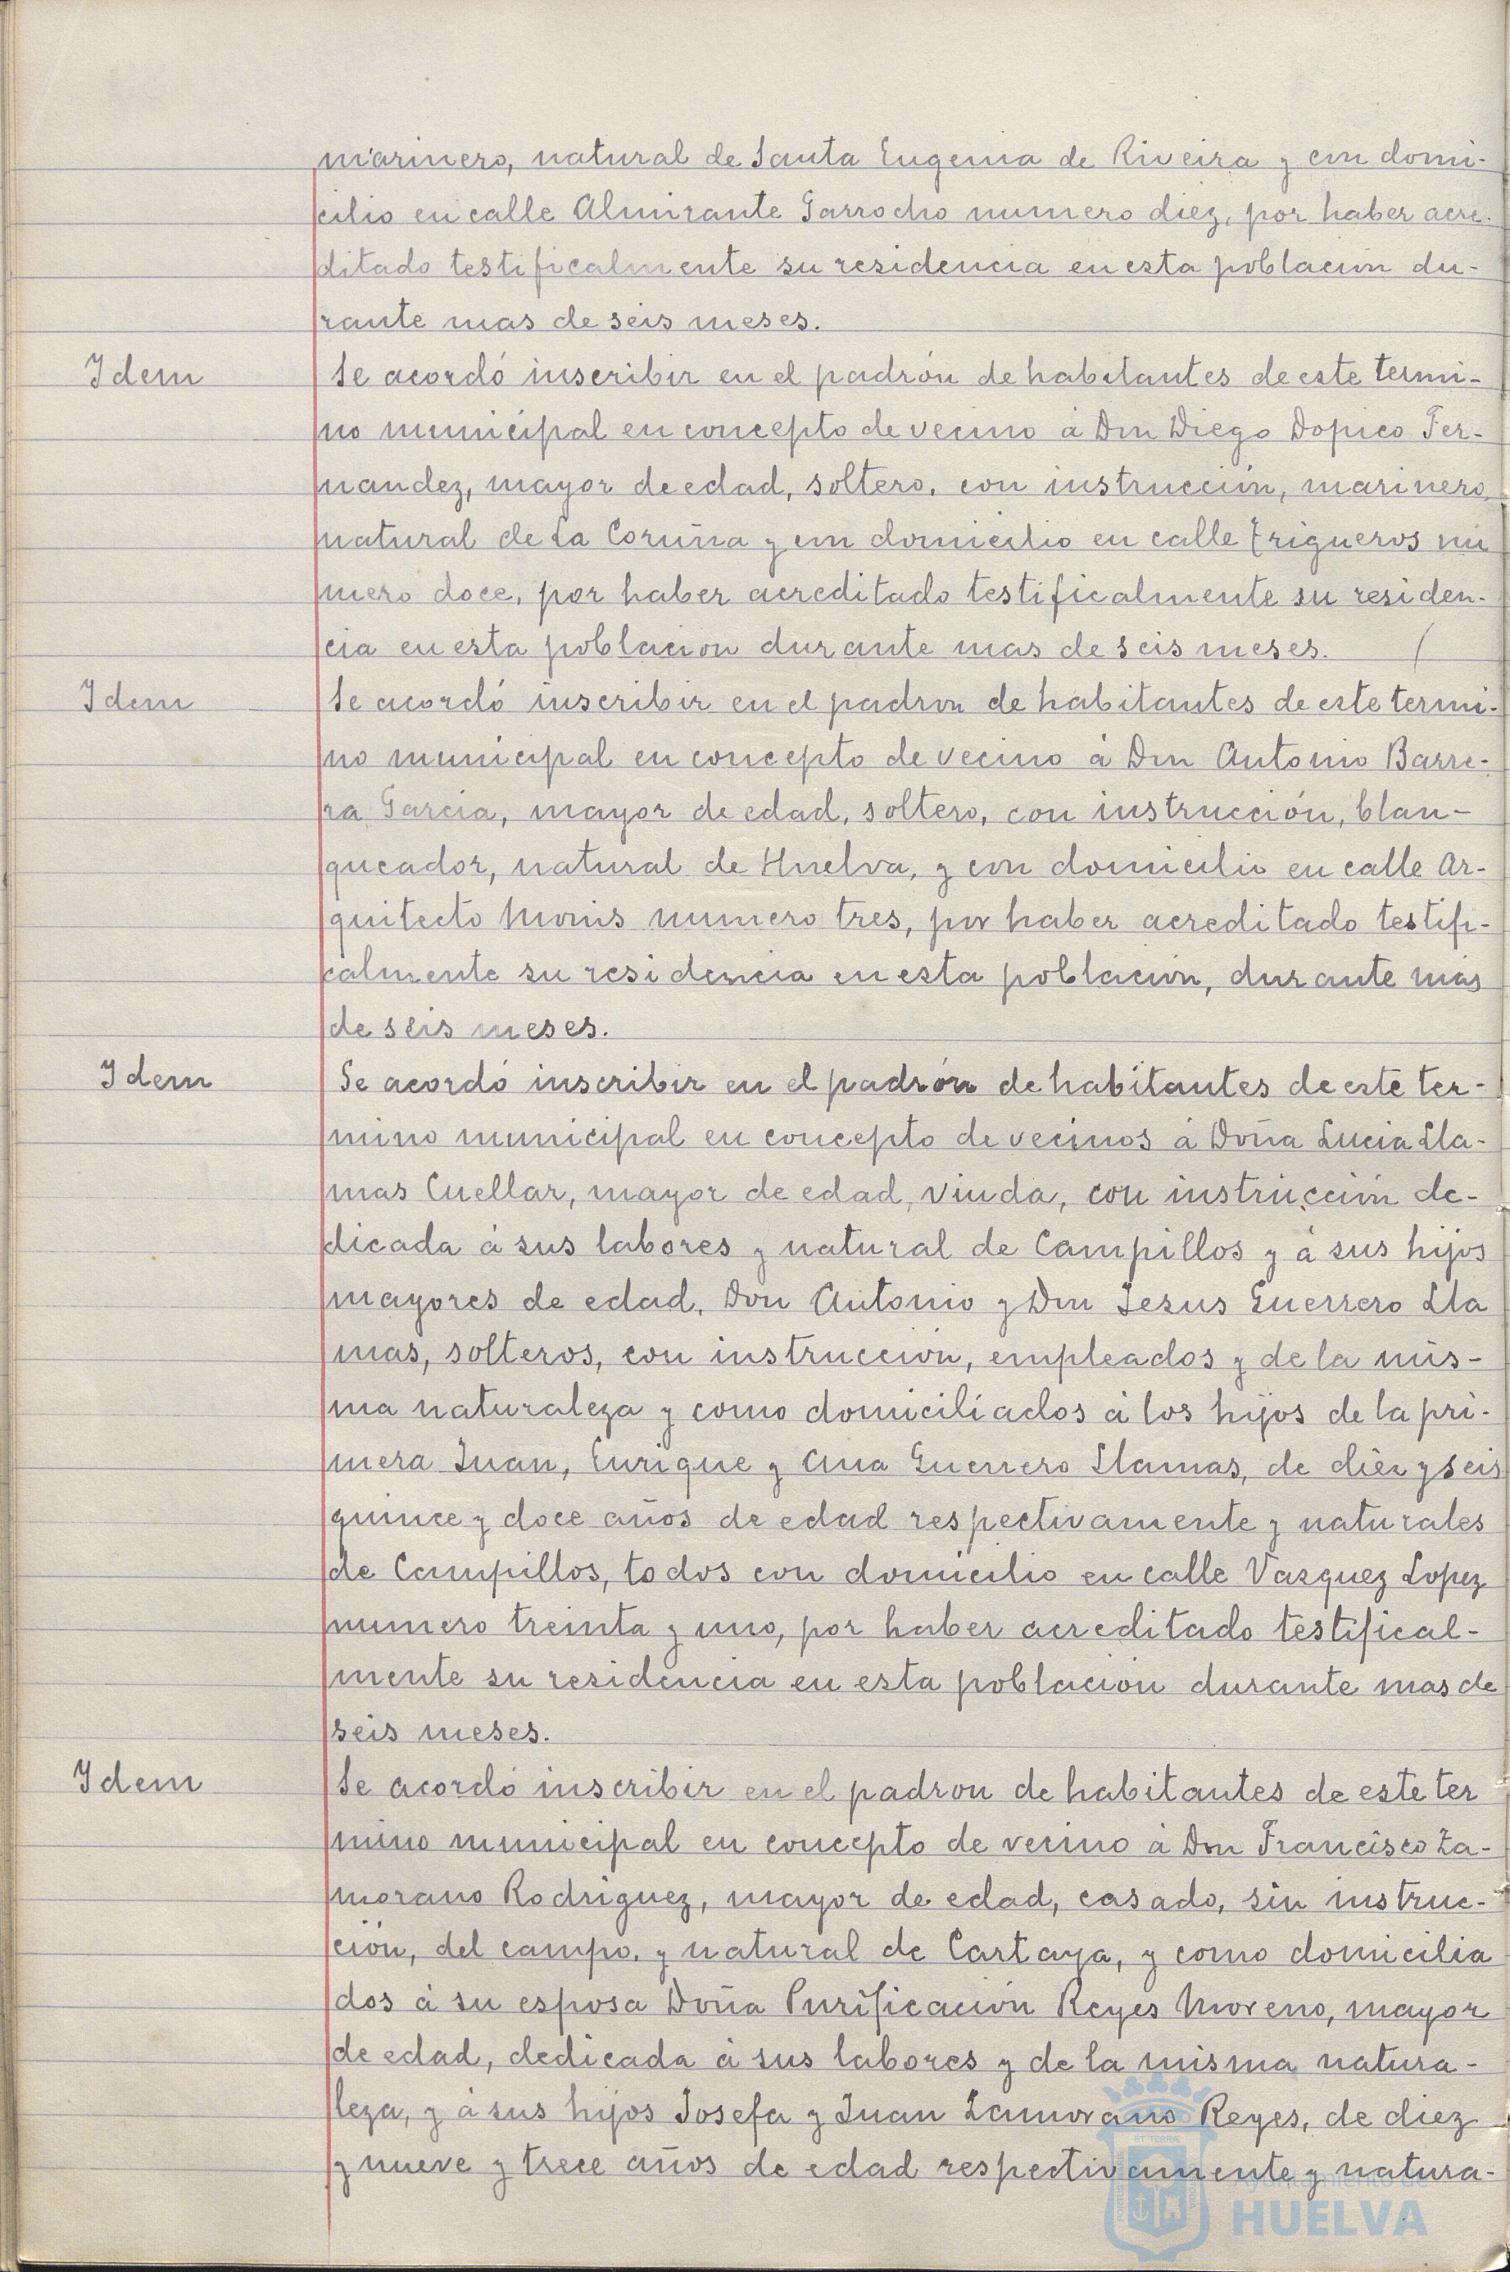 marinero, natural de Santa Eugenia de Riveira y con domi-
cilio en calle Almirante Garrocho numero diez, por haber acre-
ditado testificalmente su residencia en esta poblacion du-
rante mas de seis meses.
Idem
Se acordó inscribir en el padrón de habitantes de este termi-
no municipal en concepto de vecino á Don Diego Dopico Fer-
nandez, mayor de edad, soltero, con instrucción, marinero,
natural de La Coruña y con domicilio en calle Trigueros nu
mero doce, por haber acreditado testificalmente su residen-
cia en esta poblacion durante mas de seis meses. /
Idem
Se acordó inscribir en el padron de habitantes de este termi-
no municipal en concepto de vecino á Don Antonio Barre-
ra Garcia, mayor de edad, soltero, con instrucción, blan-
queador, natural de Huelva, y con domicilio en calle Ar-
quitecto Monis numero tres, por haber acreditado testifi-
calmente su residencia en esta población, durante más
de seis meses.
Idem
Se acordó inscribir en el padrón de habitantes de este ter-
mino municipal en concepto de vecinos á Doña Lucia Lla-
mas Cuellar, mayor de edad, viuda, con instrucción de-
dicada á sus labores y natural de Campillos y á sus hijos
mayores de edad, Don Antonio y Don Jesus Guerrero Lla
mas, solteros, con instrucción, empleados y de la mis-
ma naturaleza y como domiciliados á los hijos de la pri-
mera Juan, Enrique y Ana Guerrero Llamas, de diez y seis
quince y doce años de edad respectivamente y naturales
de Campillos, todos con domicilio en calle Vazquez Lopez
numero treinta y uno, por haber acreditado testifical-
mente su residencia en esta población durante mas de
seis meses.
Idem
Se acordó inscribir en el padron de habitantes de este ter
mino municipal en concepto de vecino á Don Francisco Za-
morano Rodriguez, mayor de edad, casado, sin instruc-
ción, del campo, y natural de Cartaya, y como domicilia
dos á su esposa Doña Purificación Reyes Moreno, mayor
de edad, dedicada á sus labores y de la misma natura-
leza, y á sus hijos Josefa y Juan Zamorano Reyes, de diez
y nueve y trece años de edad respectivamente y natura-
Ayuntamiento de
HUELVA